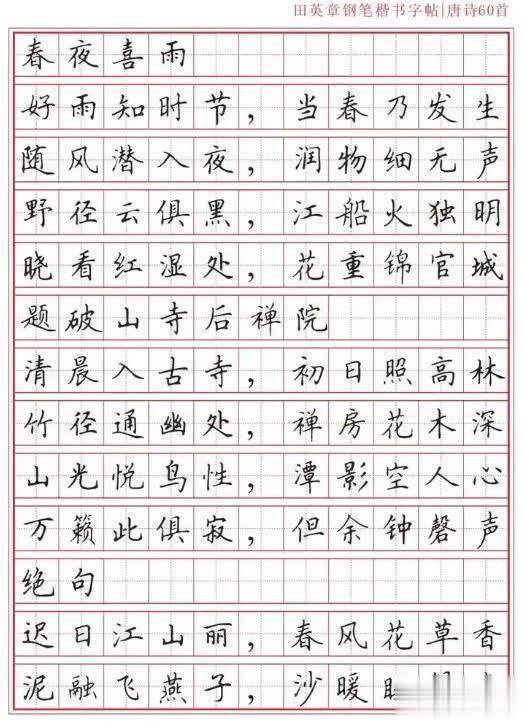 田英章钢笔楷书字帖|唐诗60首
春夜喜雨
好雨知时节，当春乃发生
随风潜入夜，润物细无声
野径云俱黑，江船火独明
晓看红湿处，花重锦官城
题破山寺后禅院
清晨入古寺，初日照高林
竹径通幽处，禅房花木深
山光悦鸟性，潭影空人心
万籁此俱寂，但余钟磬声
绝句
迟日江山丽，春风花草香
泥融飞燕子，沙暖